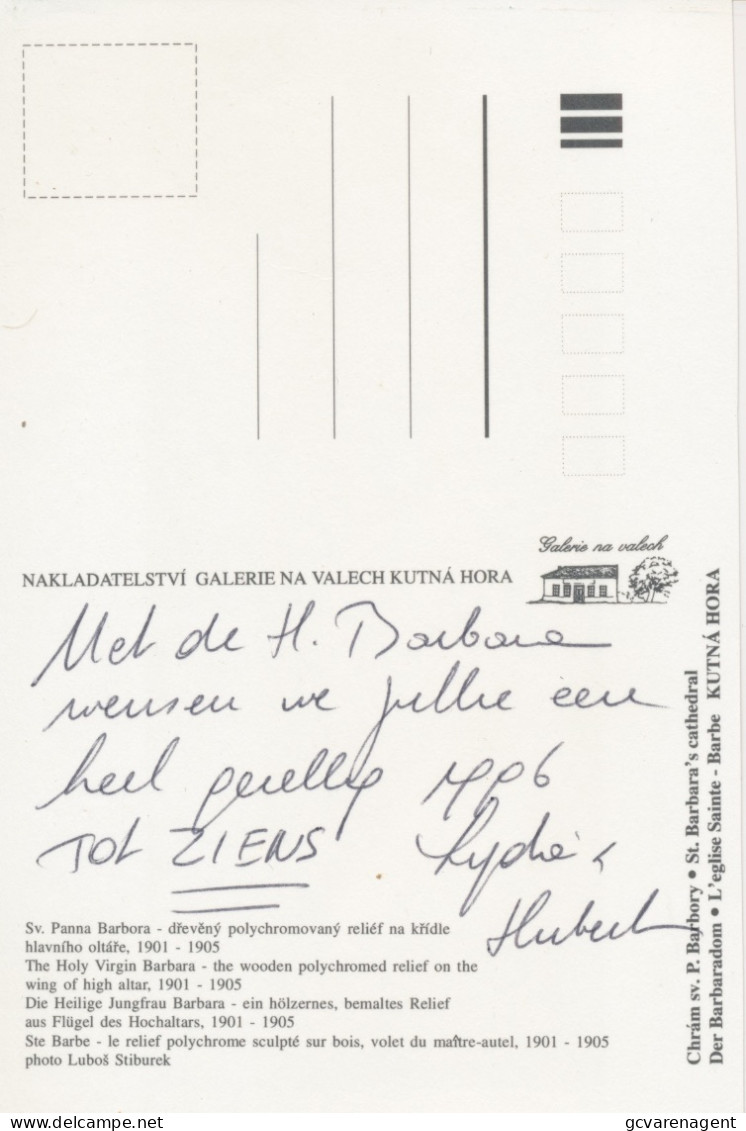 Galerie na valech
NAKLADATELSTVÍ GALERIE NA VALECH KUTNÁ HORA
Met de H. Barbara
wensen we jullie een
heel gezellig 1996
TOT ZIENS Lydia &
Hubert
Sv. Panna Barbora - dřevěný polychromovaný reliéf na křídle
hlavního oltáře, 1901 - 1905
The Holy Virgin Barbara - the wooden polychromed relief on the
wing of high altar, 1901 - 1905
Die Heilige Jungfrau Barbara - ein hölzernes, bemaltes Relief
aus Flügel des Hochaltars, 1901 - 1905
Ste Barbe - le relief polychrome sculpté sur bois, volet du maître-autel, 1901 - 1905
photo Luboš Stiburek
Chrám sv. P. Barbory • St. Barbara's cathedral
Der Barbaradom • L'eglise Sainte - Barbe KUTNÁ HORA
delcampe.net
gcvarenagent